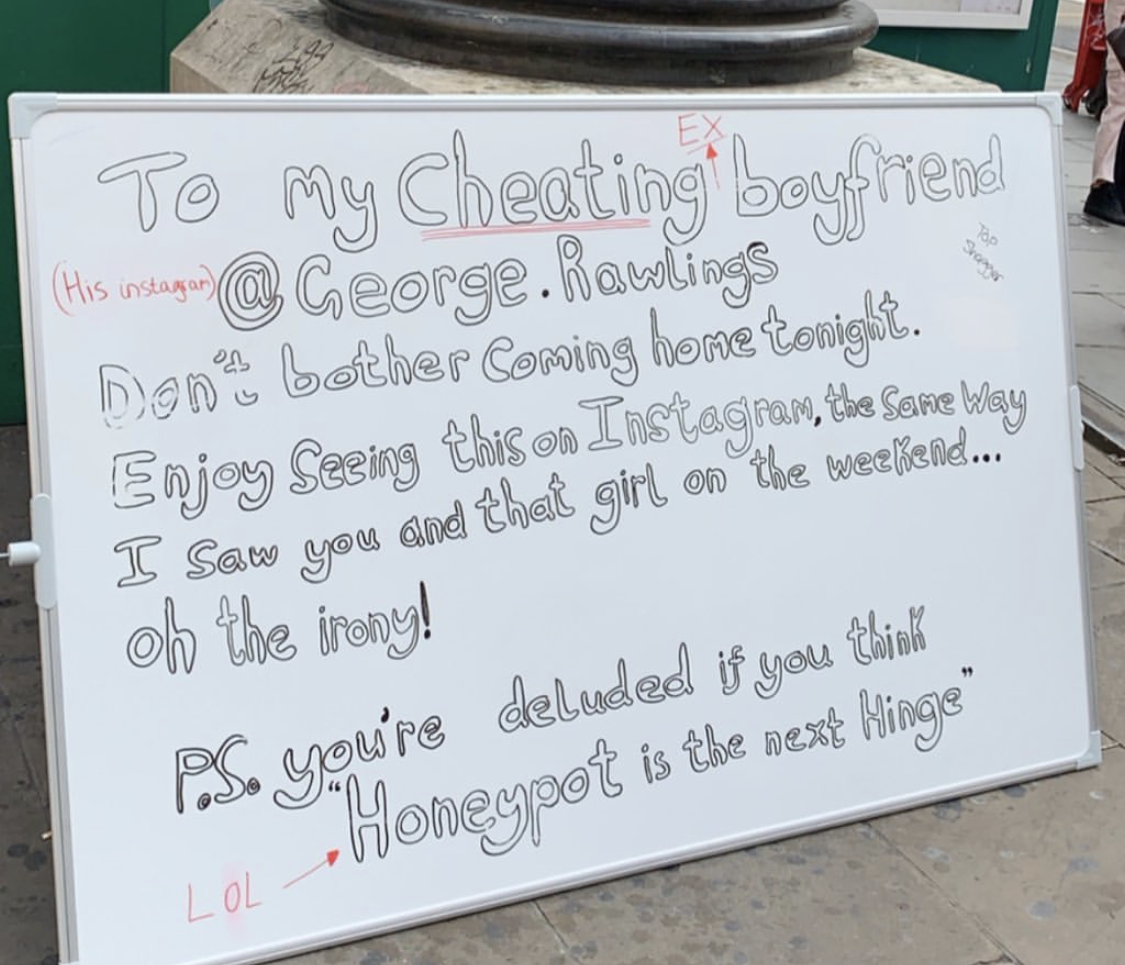 EX
To My Cheating boyfriend
(His instagram) @George.Rawlings
Top
Shagger
Don't bother Coming home tonight.
Enjoy Seeing this on Instagram, the Same Way
I Saw you and that girl on the weekend...
oh the irony!
P.S. you're deluded if you think
"Honeypot is the next Hinge"
LOL